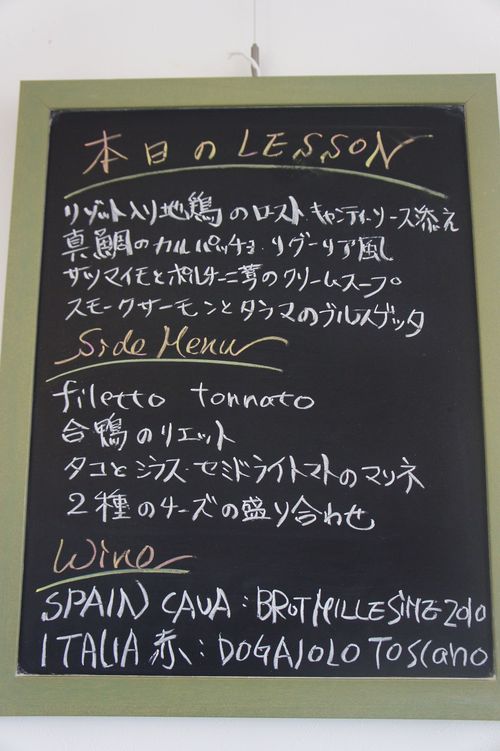 本日のLESSON
リゾット入り地鶏のロースト キャンティーソース添え
真鯛のカルパッチョ リグーリア風
サツマイモとポルチーニ茸のクリームスープ
スモークサーモンとタラマのブルスゲッタ
Side Menu
filetto tonnato
合鴨のリエット
タコとシラス・セミドライトマトのマリネ
2種のチーズの盛り合わせ
Wine
SPAIN CAVA:BRUT MILLESIME 2010
ITALIA 赤:DOGAJOLO Toscano